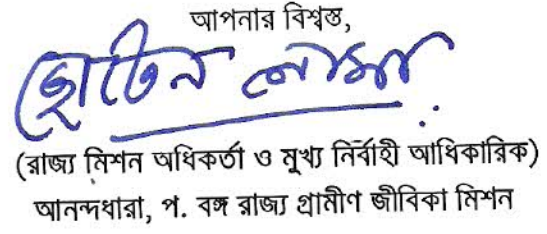 আপনার বিশ্বস্ত,
ছোটেন লামা
(রাজ্য মিশন অধিকর্তা ও মুখ্য নির্বাহী আধিকারিক)
আনন্দধারা, প. বঙ্গ রাজ্য গ্রামীণ জীবিকা মিশন